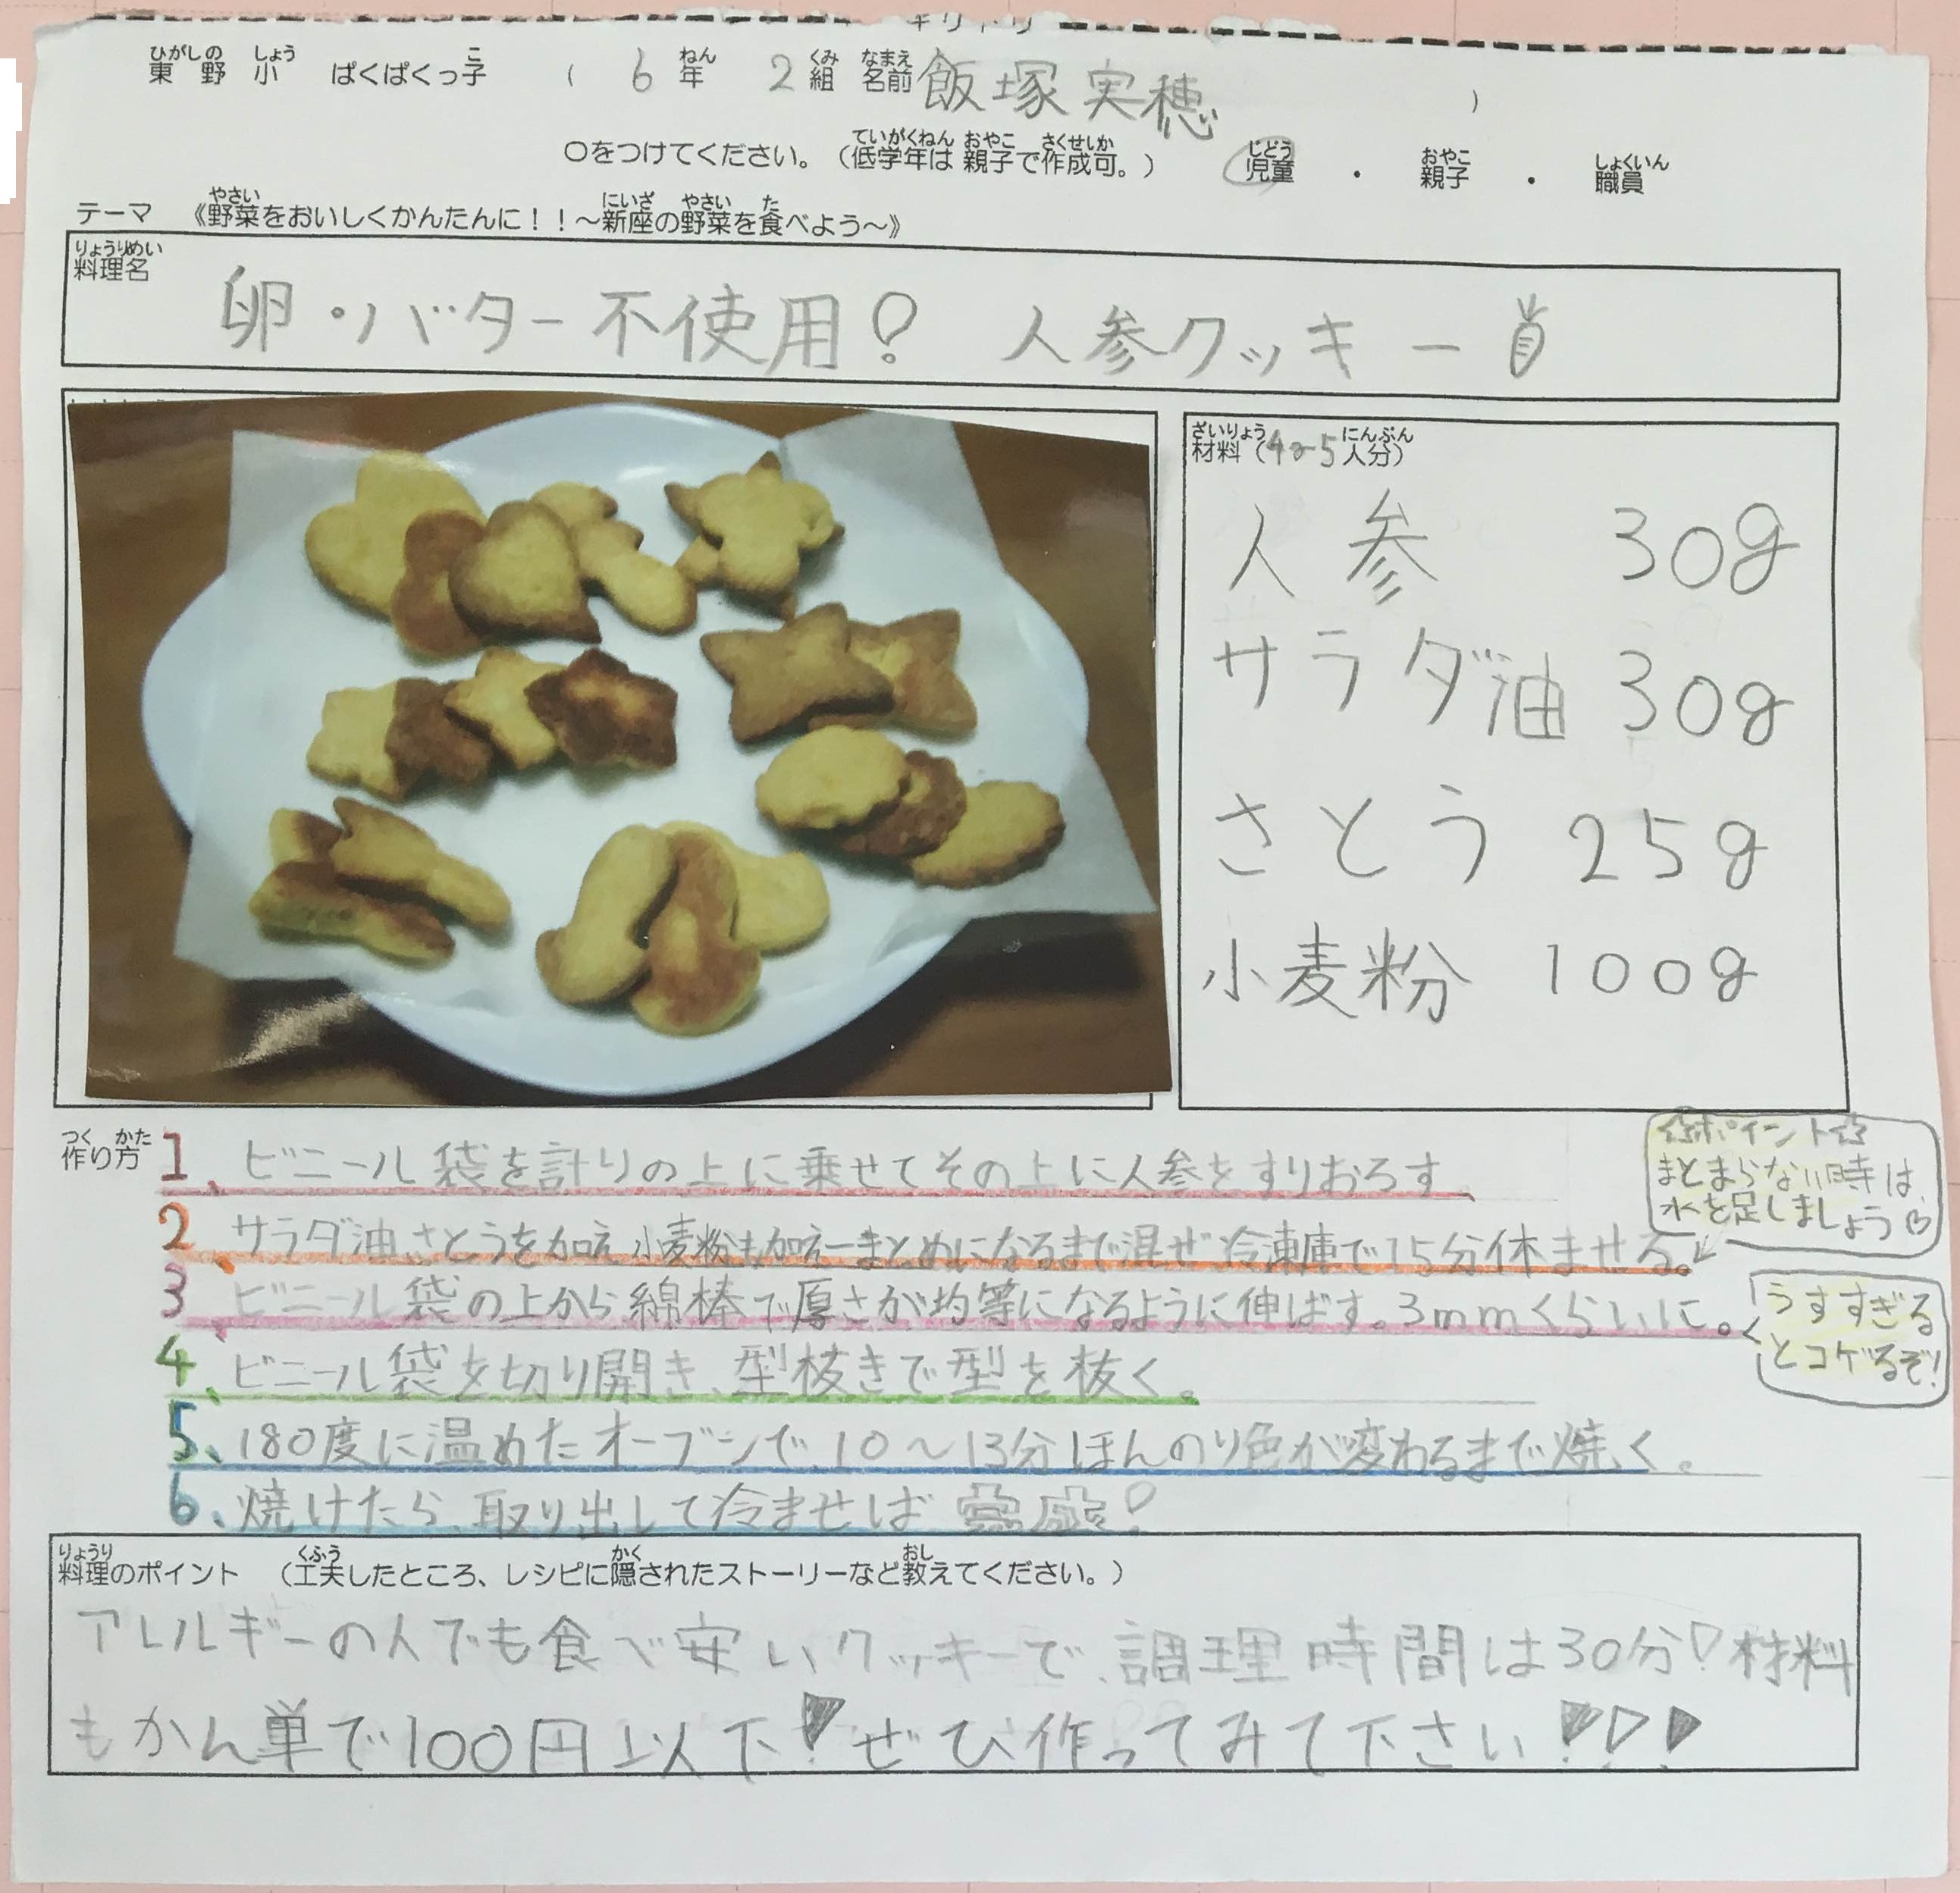 キリトリ
東野小 ぱくぱくっ子 ( 6年 2組 名前 飯塚実穂 )
ひがしの しょう こ ねん くみ なまえ
○をつけてください。(低学年は 親子で作成可。) 児童 ・ 親子 ・ 職員
ていがくねん おやこ さくせいか じどう おやこ しょくいん
テーマ 《野菜をおいしくかんたんに!!~新座の野菜を食べよう~》
やさい にいざ やさい た
りょうりめい
料理名
卵・バター不使用! 人参クッキー
ざいりょう にんぶん
材料(4~5人分)
人参 30g
サラダ油 30g
さとう 25g
小麦粉 100g
つく かた
作り方
1、ビニール袋を計りの上に乗せてその上に人参をすりおろす。
2、サラダ油、さとうを加え、小麦粉も加え一まとめになるまで混ぜ冷凍庫で15分休ませる。
☆ポイント☆
まとまらない時は、
水を足しましょう♡
3、ビニール袋の上から綿棒で厚さが均等になるように伸ばす。3mmくらいに。
うすすぎる
とコゲるぞ!
4、ビニール袋を切り開き、型抜きで型を抜く。
5、180度に温めたオーブンで、10~13分ほんのり色が変わるまで焼く。
6、焼けたら、取り出して冷ませば完成!
りょうり くふう かく おし
料理のポイント (工夫したところ、レシピに隠されたストーリーなど教えてください。)
アレルギーの人でも食べ安いクッキーで、調理時間は30分!材料
もかん単で100円以下!ぜひ作ってみて下さい!!!